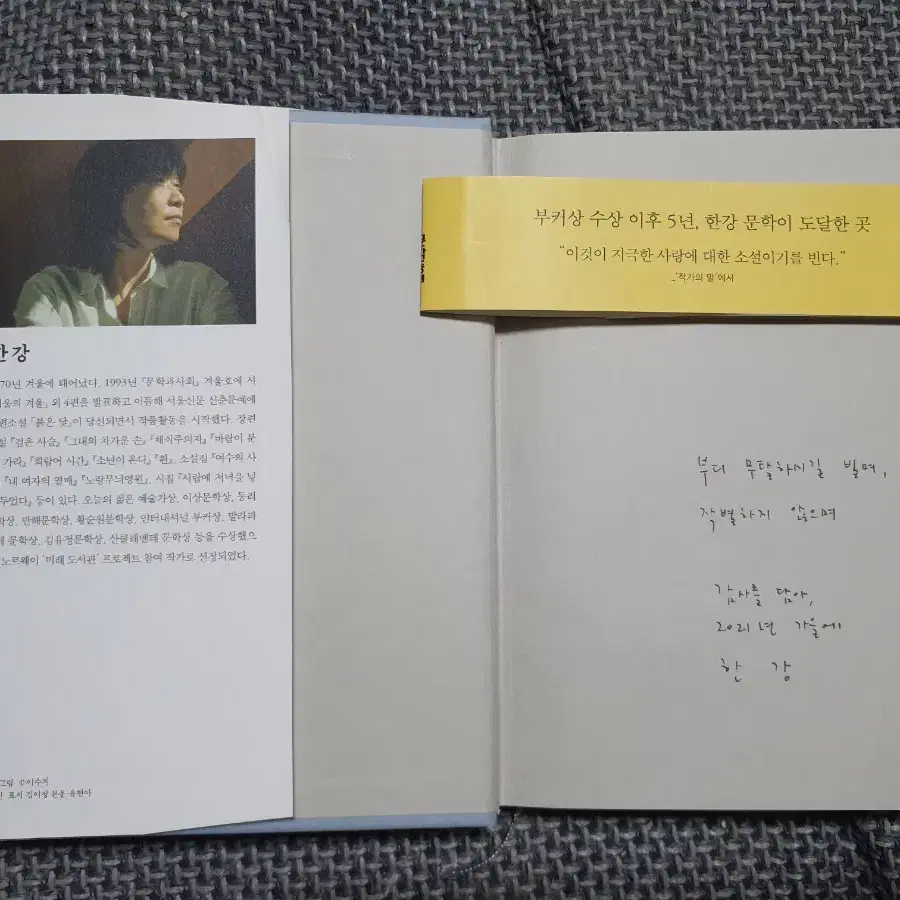 한강
70년 겨울에 태어났다. 1993년 『문학과사회』 겨울호에 시
외 4편을 발표하고 이듬해 서울신문 신춘문예에
편소설 「붉은 닻」이 당선되면서 작품활동을 시작했다. 장편
『검은 사슴』 『그대의 차가운 손』 『채식주의자』 『바람이 분
가라』 『희랍어 시간』 『소년이 온다』 『흰』, 소설집 『여수의 사
『내 여자의 열매』 『노랑무늬영원』, 시집 『서랍에 저녁을 넣
두었다』 등이 있다. 오늘의 젊은 예술가상, 이상문학상, 동리
학상, 만해문학상, 황순원문학상, 인터내셔널 부커상, 말라파
문학상, 김유정문학상, 산클레멘테 문학상 등을 수상했으
노르웨이 '미래 도서관' 프로젝트 참여 작가로 선정되었다.
그림 ©이수지
표지 김이정 본문 유현아
부커상 수상 이후 5년, 한강 문학이 도달한 곳
“이것이 지극한 사랑에 대한 소설이기를 빈다.”
_'작가의 말'에서
부디 무탈하시길 빌며,
작별하지 않으며
감사를 담아,
2021년 가을에
한 강